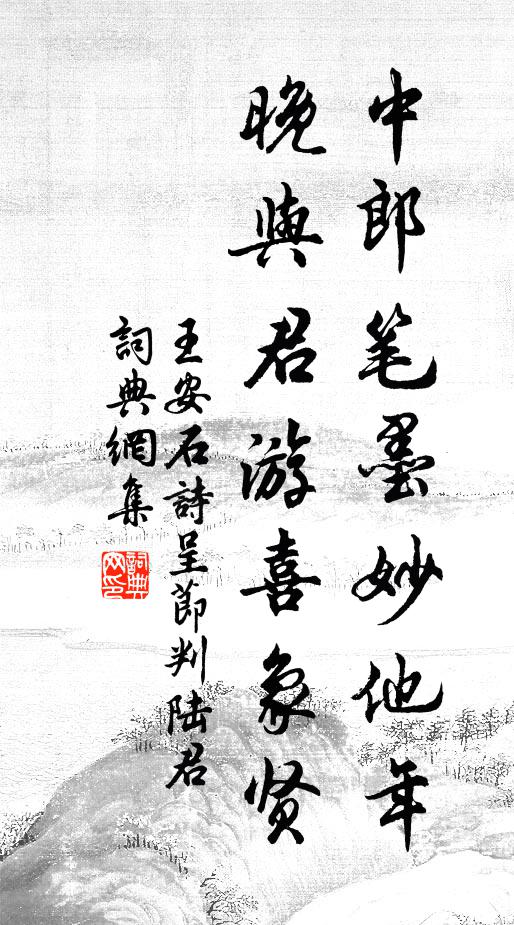 中郎笔墨妙他年
晚與君游喜象贤
王安石詩呈節判陆君
詞典網集
詞典网印